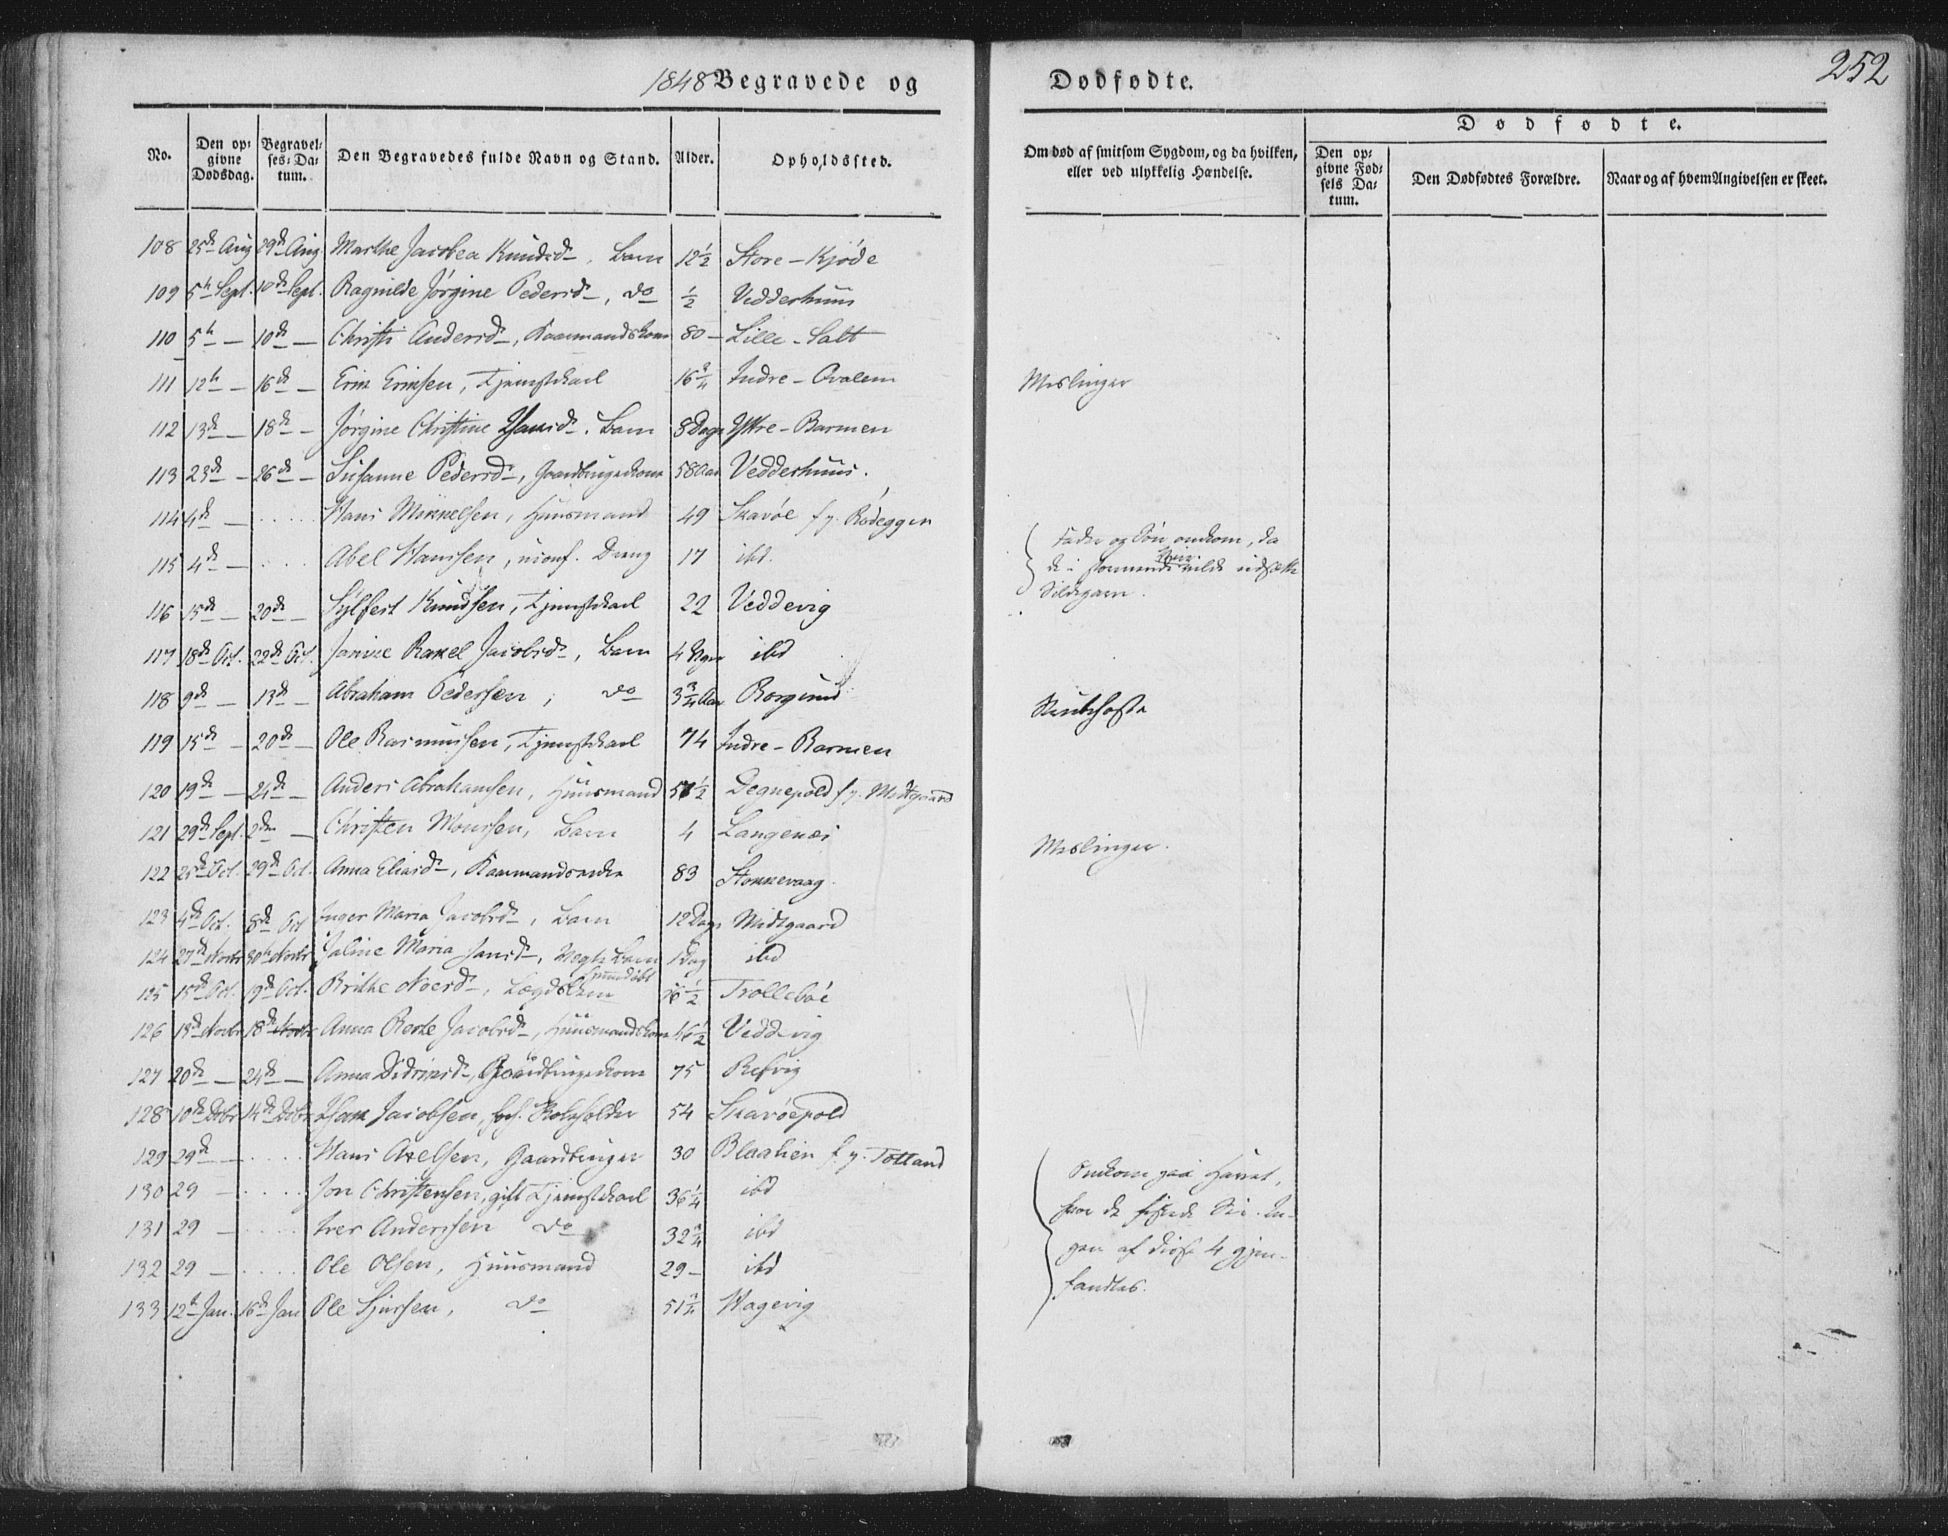 1848 Begravede og Dødfødte.
252
No.
Den opgivne Dødsdag.
Begravelses-Datum.
Den Begravedes fulde Navn og Stand.
Alder.
Opholdssted.
Om død af smitsom Sygdom, og da hvilken, eller ved ulykkelig Hændelse.
Dødfødte.
Den opgivne Fødsels Datum.
Den Dødfødtes Forældre.
Naar og af hvem Angivelsen er skeet.
108 25de Aug 29de Aug Marthe Jacobea Knudsd., Barn 12½ Store-Kjøde
109 5te Sept. 10de Sept. Ragnilde Jørgine Pedersd., do ½ Vedderhuus
110 5te — 10de — Christi Andersd., Kaarmandskone 80 — Lille-Salt
111 12te — 16de — Erik Eriksen, Tjenestekarl 16¾ Indre-Oralem Meslinger
112 13de — 18de — Jørgine Christine Hansd., Barn 8 Dage Ytre-Barmen
113 23de — 26de — Susanne Pedersd., Gaardbrugerkone 58 Aar Vedderhuus.
114 4de — ..... Hans Mikkelsen, Huusmand 49 Skavøe f. g. Rødeggen
115 4de — .... Abel Hanssen, uconf. Dreng 17 ibd.
Fader og Søn omkom, da
de i stormende Veir vilde udsætte
Sildegarn.
116 15de — 20de — Sylfest Knudsen, Tjenestekarl 22 Veddevig
117 18de Oct. 22de Oct. Janike Rakel Jacobsd., Barn 4 Uger ibd
118 9de — 13de — Abraham Pedersen, do 3¾ Aar Borgund Kiighoste
119 15de — 20de — Ole Rasmussen, Tjenestekarl 74 Indre-Barmen
120 19de — 24de — Anders Abrahamsen, Huusmand 57½ Degnepold f. g. Midtgaard
121 29de Sept. 2den — Christen Monssen, Barn 4 Langenæs Meslinger.
122 25de Oct. 29de Oct. Anna Eliasd., Kaarmandsenke 83 Stokkevaag.
123 4de Oct. 8de Oct Inger Maria Jacobsd., Barn 12 Dage Midtgaard
124 27de Novbr 30te Novbr Jaline Maria Jansd., Uegte Barn 1 Dag ibd
125 15de Oct. 19de Oct. Brithe Noersd., Lægdslem 76½ Trolleboe
126 13de Novbr 18de Novbr Anna Berthe Jacobsd., Huusmandskone 46½ Veddevig
127 20de — 24de — Anna Didriksd., Gaardbrugerkone 75 Refvig
128 10de Decbr 14de Decbr Isak Jacobsen, forh. Skoleholder 54 Skavøepold
129 29de — .... Hans Axelsen, Gaardbruger 30 Blaalien f. g. Totland
130 29 — .... Jon Christensen, gift Tjenestekarl 36¼ ibd
131 29 — .... Iver Anderssen do 32¾ ibd
132 29 — .... Ole Olsen, Huusmand 29 — ibd
Omkom paa Havet,
hvor de fiskede Sei. In-
gen af disse 4 gjen-
fandtes.
133 12te Jan. 16de Jan Ole Sjurssen, do 51¾ Hagevig